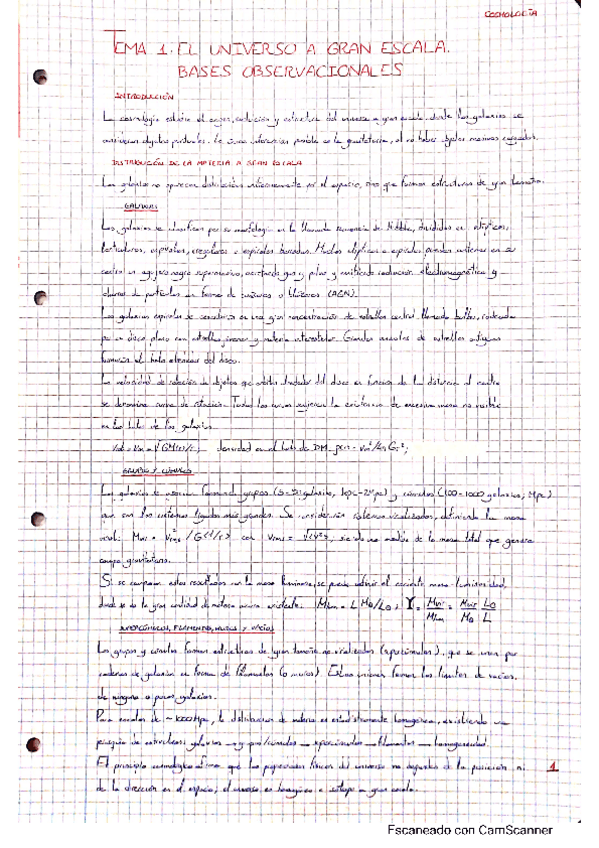 COSMOLOGÍA
TEMA 1. EL UNIVERSO A GRAN ESCALA.
BASES OBSERVACIONALES
INTRODUCCIÓN
La cosmología estudia el origen, evolución y estructura del universo a gran escala, donde las galaxias se
consideran objetos puntuales. La única interacción posible es la gravitatoria, al no haber objetos masivos cargados.
DISTRIBUCIÓN DE LA MATERIA A GRAN ESCALA
Las galaxias no aparecen distribuidas uniformemente en el espacio, sino que forman estructuras de gran tamaño.
GALAXIAS
Las galaxias se clasifican por su morfología en la llamada secuencia de Hubble, divididas en elípticas,
lenticulares, espirales, irregulares o espirales barradas. Muchas elípticas o espirales pueden contener en su
centro un agujero negro supermasivo, acretando gas y polvo y emitiendo radiación electromagnética y
chorros de partículas en forma de cuásares o blázares (AGN).
Las galaxias espirales se caracterizan por una gran concentración de estrellas central llamada bulbo, rodeada
por un disco plano con estrellas, y materia interestelar. Grandes de estrellas antiguas
forman el halo alrededor del disco.
La velocidad de rotación de objetos que orbitan alrededor del disco en función de la distancia al centro
se denomina curva de rotación. Todas las curvas sugieren la existencia de masa no visible
en los halos de las galaxias.
densidad en el halo de DM
GRUPOS Y CÚMULOS
Las galaxias se asocian formando grupos y cúmulos (100-1000 galaxias, Mpc)
que son los sistemas ligados más grandes. Se consideran sistemas virializados, definiendo la masa
virial: siendo una medida de la masa total que genera
campo gravitatorio.
Si se comparan estos resultados con la masa luminosa, se puede definir el cociente masa luminosidad,
SUPERCÚMULOS, FILAMENTOS, MUROS Y VACÍOS
Los grupos y cúmulos forman estructuras de gran tamaño no virializadas (supercúmulos), que se unen por
cadenas de galaxias en forma de filamentos (o muros). Estas uniones forman los límites de vacíos,
de ninguna o pocas galaxias.
Para escalas de la distribución de materia es estadísticamente homogénea, existiendo una
jerarquía de estructuras: galaxias → grupos/cúmulos → supercúmulos → filamentos → homogeneidad.
El principio cosmológico afirma que las propiedades físicas del universo no dependen de la posición ni
de la dirección en el espacio; el universo es homogéneo e isótropo a gran escala.
1
Escaneado con CamScanner